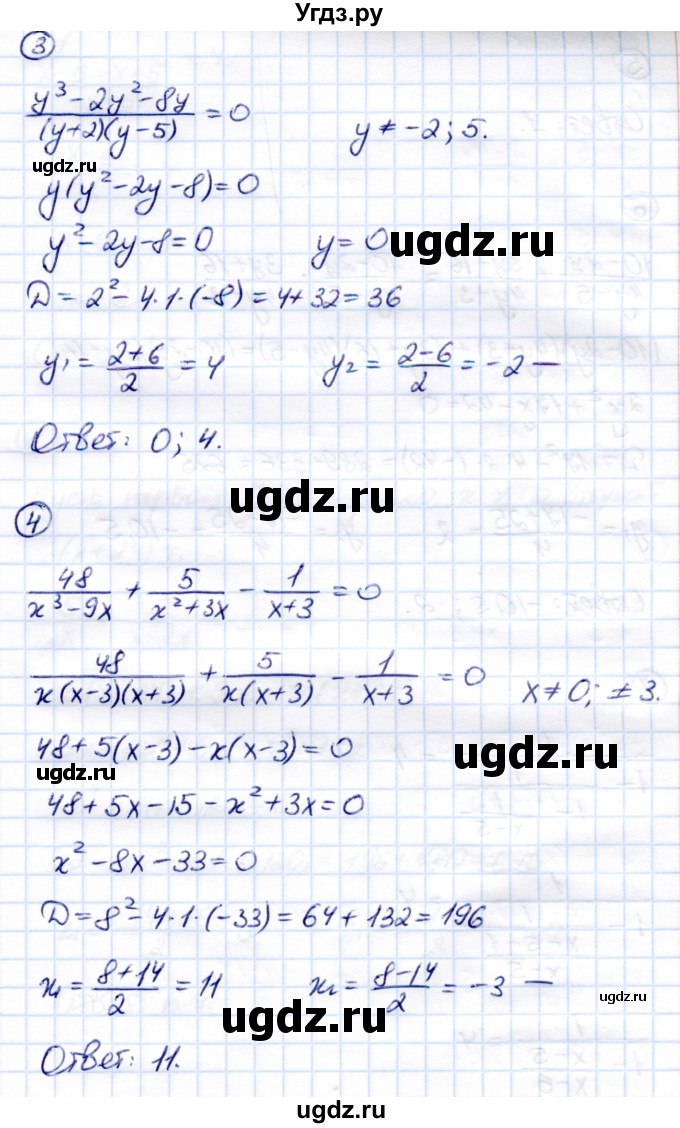 Угдз.ру
3
(y³ - 2y² - 8y)/((y+2)(y-5)) = 0 y ≠ -2; 5.
ugdz.ru
y(y² - 2y - 8) = 0
y² - 2y - 8 = 0 y = 0
ugdz.ru
D = 2² - 4·1·(-8) = 4 + 32 = 36
y₁ = (2+6)/2 = 4 y₂ = (2-6)/2 = -2 —
Ответ: 0; 4.
ugdz.ru
4
48/(x³ - 9x) + 5/(x² + 3x) - 1/(x+3) = 0
48/(x(x-3)(x+3)) + 5/(x(x+3)) - 1/(x+3) = 0 x ≠ 0; ±3.
48 + 5(x-3) - x(x-3) = 0
ugdz.ru
ugdz.ru
48 + 5x - 15 - x² + 3x = 0
x² - 8x - 33 = 0
D = 8² - 4·1·(-33) = 64 + 132 = 196
x₁ = (8+14)/2 = 11 x₂ = (8-14)/2 = -3 —
ugdz.ru
ugdz.ru
Ответ: 11.
ugdz.ru